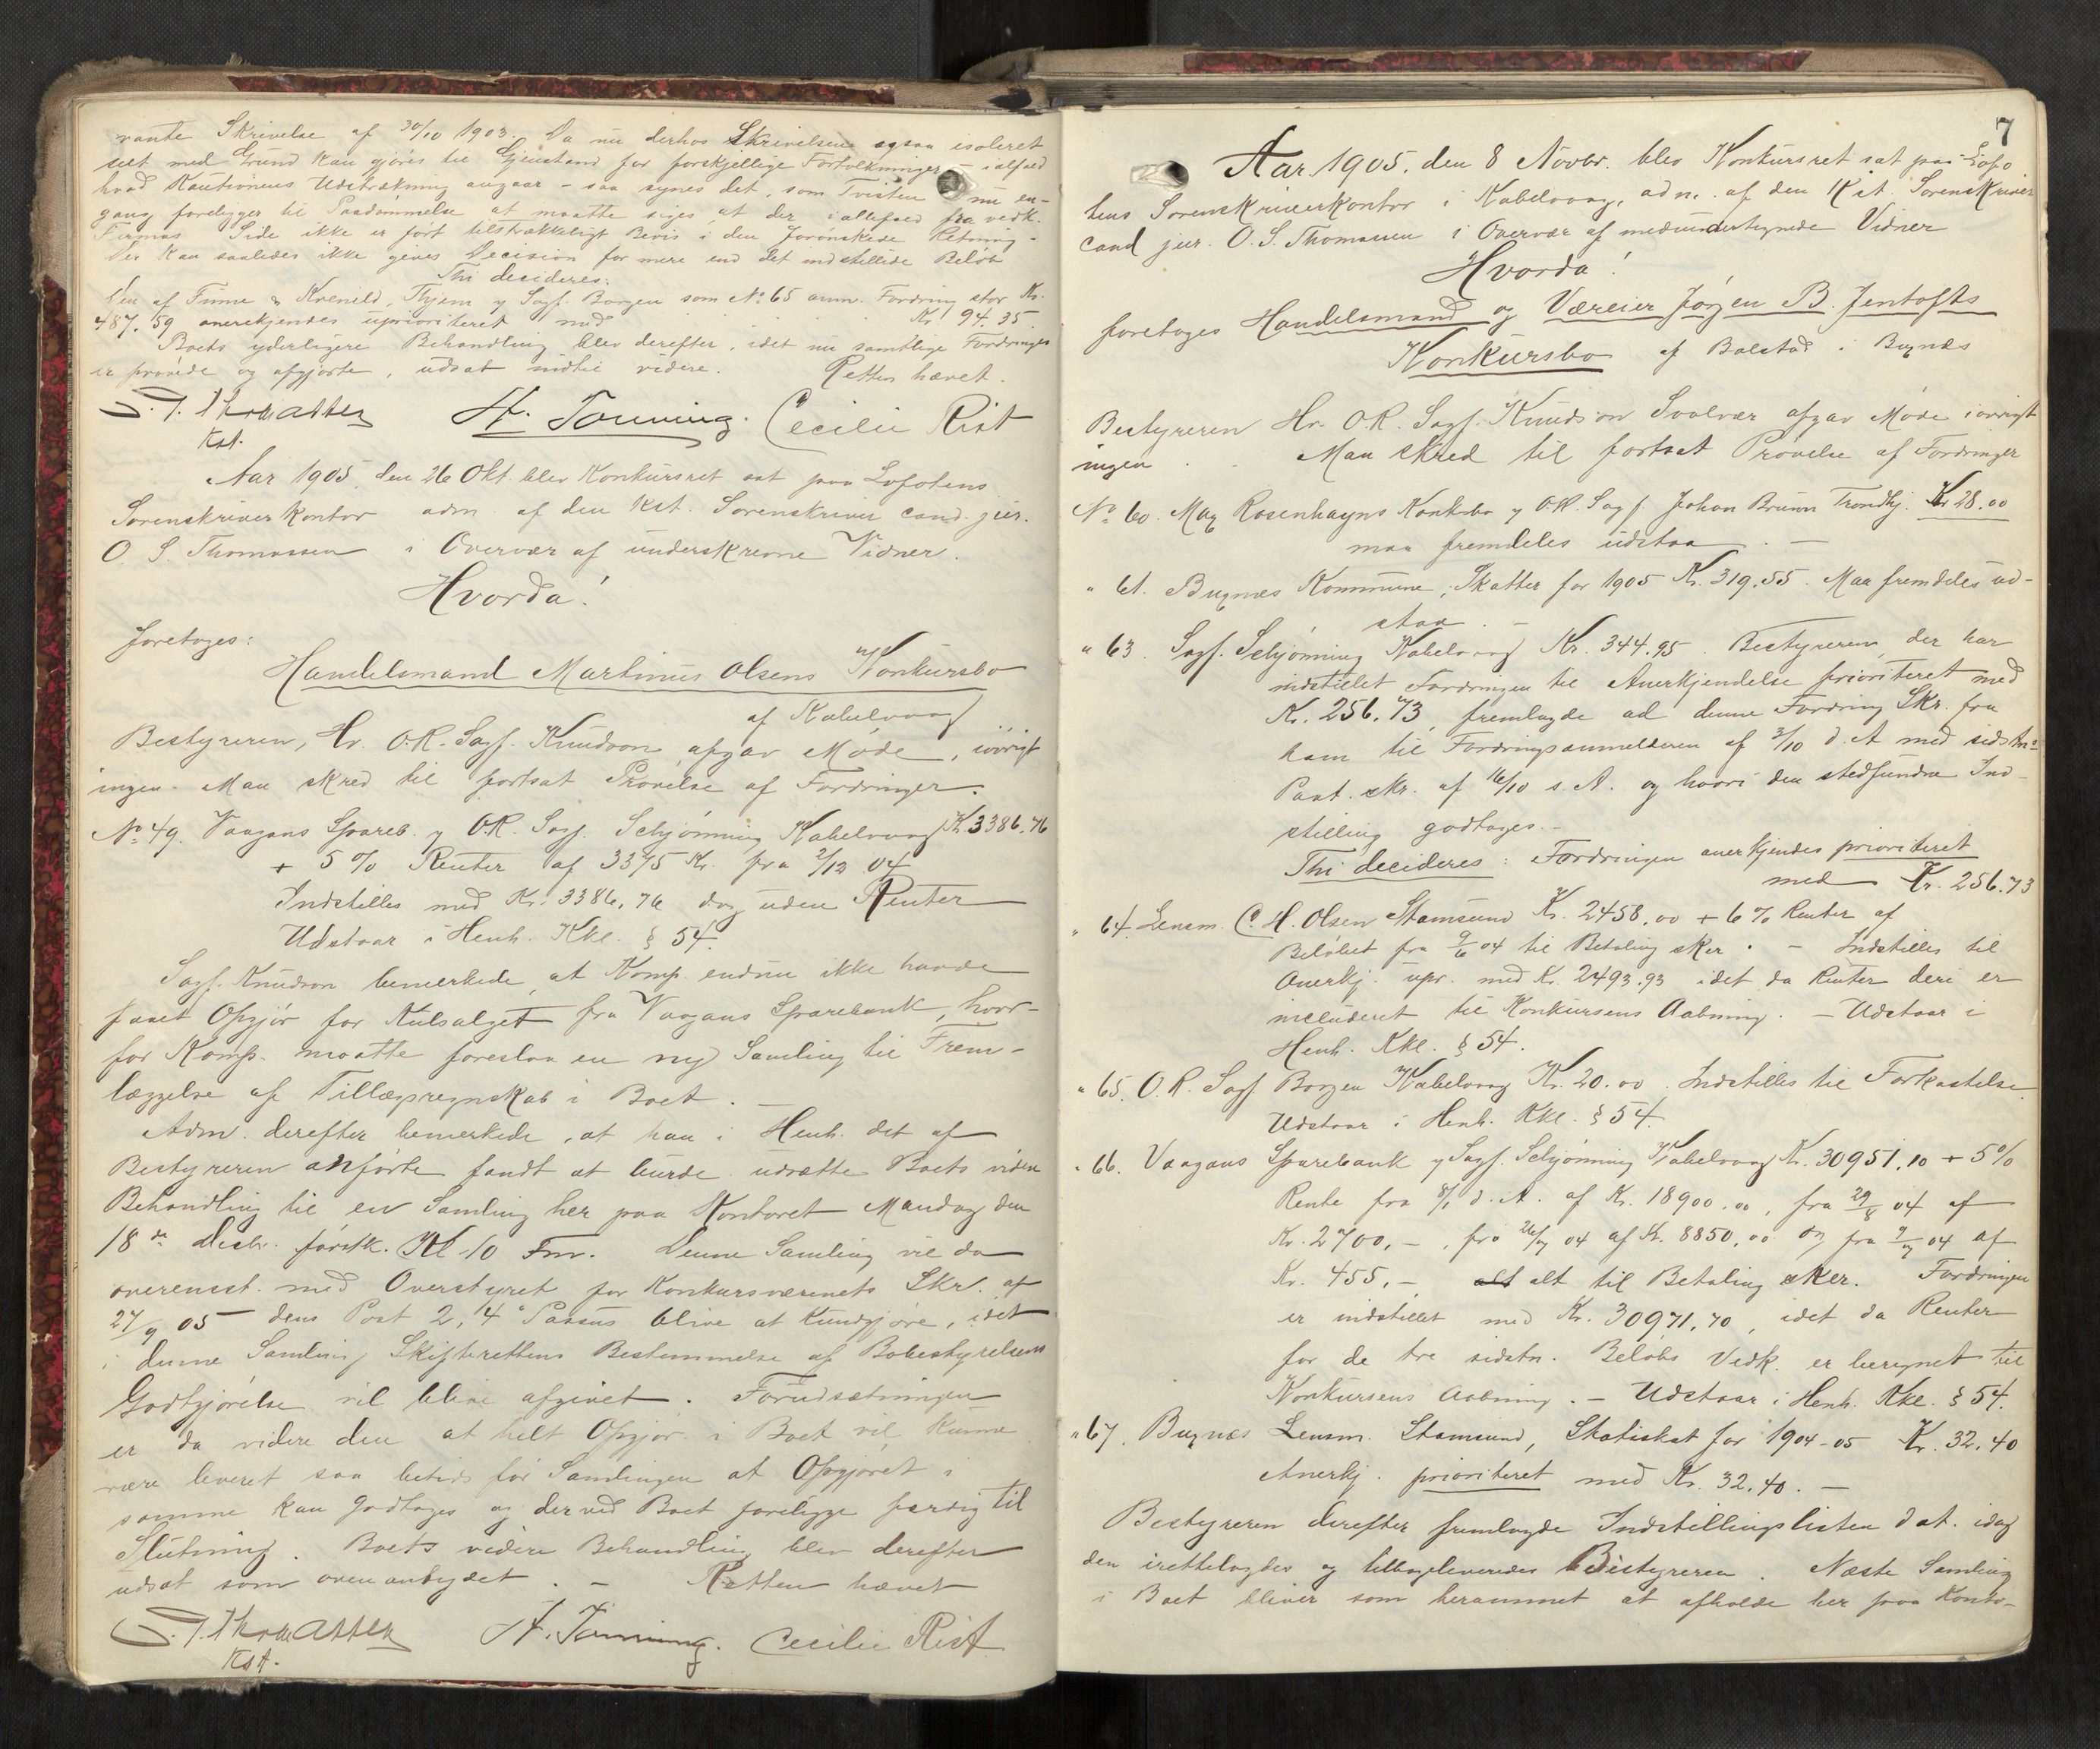 vante Skrivelse af 30/10 1903. Da nu derhos Skrivelsen ogsaa isoleret
seet med Grund kan gjöres til Gjenstand for forskjellige Fortolkninger - ialfald
hvad Kautionens Udstrækning angaar - saa synes det, som Tvisten nu en-
gang foreligger til Paadömmelse at maatte siges at der iallefald fra vedk.
Firmas Side ikke er fört tilstrækkeligt Bevis i den forönskede Retning -
Der kan saaledes ikke gives Decision for mere end det indstillede Belöb
Thi decideres:
Den af Finne & Kvenild, Thjem v Sagf. Borgen som No 65 anm. Fordring stor Kr.
487.59 anerkjendes uprioriteret med Kr. 94.35
Boets yderligere Behandling blev derefter, idet nu samtlige Fordringer
er prövede og afgjorte, udsat indtil videre. Retten hævet.
O. S. Thomassen H. Tönning. Cecilie Rist
Kst.
Aar 1905 den 26 Okt. blev Konkursret sat paa Lofotens
Sorenskriverkontor adm. af den kst. Sorenskriver cand. jur.
O. S. Thomassen i Overvær af underskrevne Vidner.
Hvorda!
foretoges:
Handelsmand Martinus Olsens Konkursbo
af Kabelvaag
Bestyreren, Hr. O.R. Sagf. Knudson afgav Möde, iövrigt
ingen. Man skred til fortsat Prövelse af Fordringer.
No 49. Vaagans Spareb. v O.R. Sagf. Schjönning Kabelvaag Kr. 3386.76
+ 5 % Renter af 3375 Kr. fra 2/12 04
Indstilles med Kr. 3386,76 dog uden Renter
Udstaar i Henh. Kkl. § 54.
Sagf. Knudson bemerkede, at Komp. endnu ikke havde
faaet Opgjör for Kulsalget fra Vaagans Sparebank, hvor-
for Komp. maatte foreslaa en ny Samling til Frem-
læggelse af Tillægsregnskab i Boet. -
Adm. derefter bemerkede, at han i Henh. det af
Bestyreren anförte fandt at burde udsætte Boets videre
Behandling til en Samling her paa Kontoret Mandag den
18de Decbr. förstk. Kl 10 Fm. Denne Samling vil da
overensst. med Overstyret for Konkursværenets Skr. af
27/9 05 dens Post 2, 4° Passus blive at kundgjöre, idet
i denne Samling Skifterettens Bestemmelse af Bobestyrelsens
Godtgjörelse vil blive afgivet. Forudsætningen
er da videre den at helt Opgjör i Boet vil kunne
være leveret saa betids för Samlingen at Opgjöret i
samme kan godtages og derved Boet foreligge færdig til
Slutning. Boets videre Behandling blev derefter
udsat som ovenantydet. - Retten hævet
O. S. Thomassen H. Tönning. Cecilie Rist
Kst.
7
Aar 1905, den 8 Novbr. blev Konkursret sat paa Lofo
tens Sorenskriverkontor i Kabelvaag, adm. af den Kst. Sorenskriver
cand jur. O. S. Thomassen i Overvær af medundertegnede Vidner
Hvorda!
foretoges Handelsmand og Væreier Jørgen B. Jentofts
Konkursbo af Balstad i Buxnæs
Bestyreren Hr. O.R. Sagf. Knudson Svolvær afgav Möde iövrigt
ingen. Man skred til fortsat Prövelse af Fordringer
No 60. Max Rosenhayns Konk.bo v O.R. Sagf. Johan Bruun Trondhj. Kr 28.00
maa fremdeles udstaa. -
" 61. Buxnæs Kommune, Skatter for 1905 Kr. 319.55. Maa fremdeles ud-
staa. -
" 63. Sagf. Schjönning Kabelvaag Kr. 344.95. Bestyreren, der har
indstillet Fordringen til Anerkjendelse prioriteret med
Kr. 256.73, fremlagde ad denne Fordring Skr. fra
ham til Fordringsanmelderen af 3/10 d. A med sidstn.
Paat. skr. af 16/10 s. A. og hvori den stedfundne Ind-
stilling godtages. -
Thi decideres: Fordringen anerkjendes prioriteret
med Kr. 256.73
" 64. Lensm. C. H. Olsen Stamsund Kr. 2458.00 + 6 % Renter af
Belöbet fra 9/6 04 til Betaling sker. - Indstilles til
Anerkj. upr. med Kr. 2493.93 idet da Renter deri er
includeret til Konkursens Aabning. - Udstaar i
Henh. Kkl. § 54.
" 65. O.R. Sagf. Borgen Kabelvaag Kr. 20.00. Indstilles til Forkastelse.
Udstaar i Henh. Kkl. § 54.
" 66. Vaagans Sparebank v Sagf. Schjönning Kabelvaag Kr. 30951.10 + 5 %
Rente fra 8/1 d. A. af Kr. 18900.00, fra 29/8 04 af
Kr. 2700,-, fra 26/7 04 af Kr. 8850.00 og fra 9/7 04 af
Kr. 455,- alt til Betaling sker. Fordringen
er indstillet med Kr. 30971.70, idet da Renter
for de tre sidstn. Belöbs Vedk. er beregnet til
Konkursens Aabning. - Udstaar i Henh. Kkl. § 54.
" 67. Buxnæs Lensm. Stamsund, Skatiskat for 1904-05 Kr. 32.40
Anerkj. prioriteret med Kr. 32.40. -
Bestyreren derefter fremlagde Indstillingslisten dat. idag
den irettelagdes og tilbageleveredes Bestyreren. Næste Samling
i Boet bliver som berammet at afholde her paa Konto-